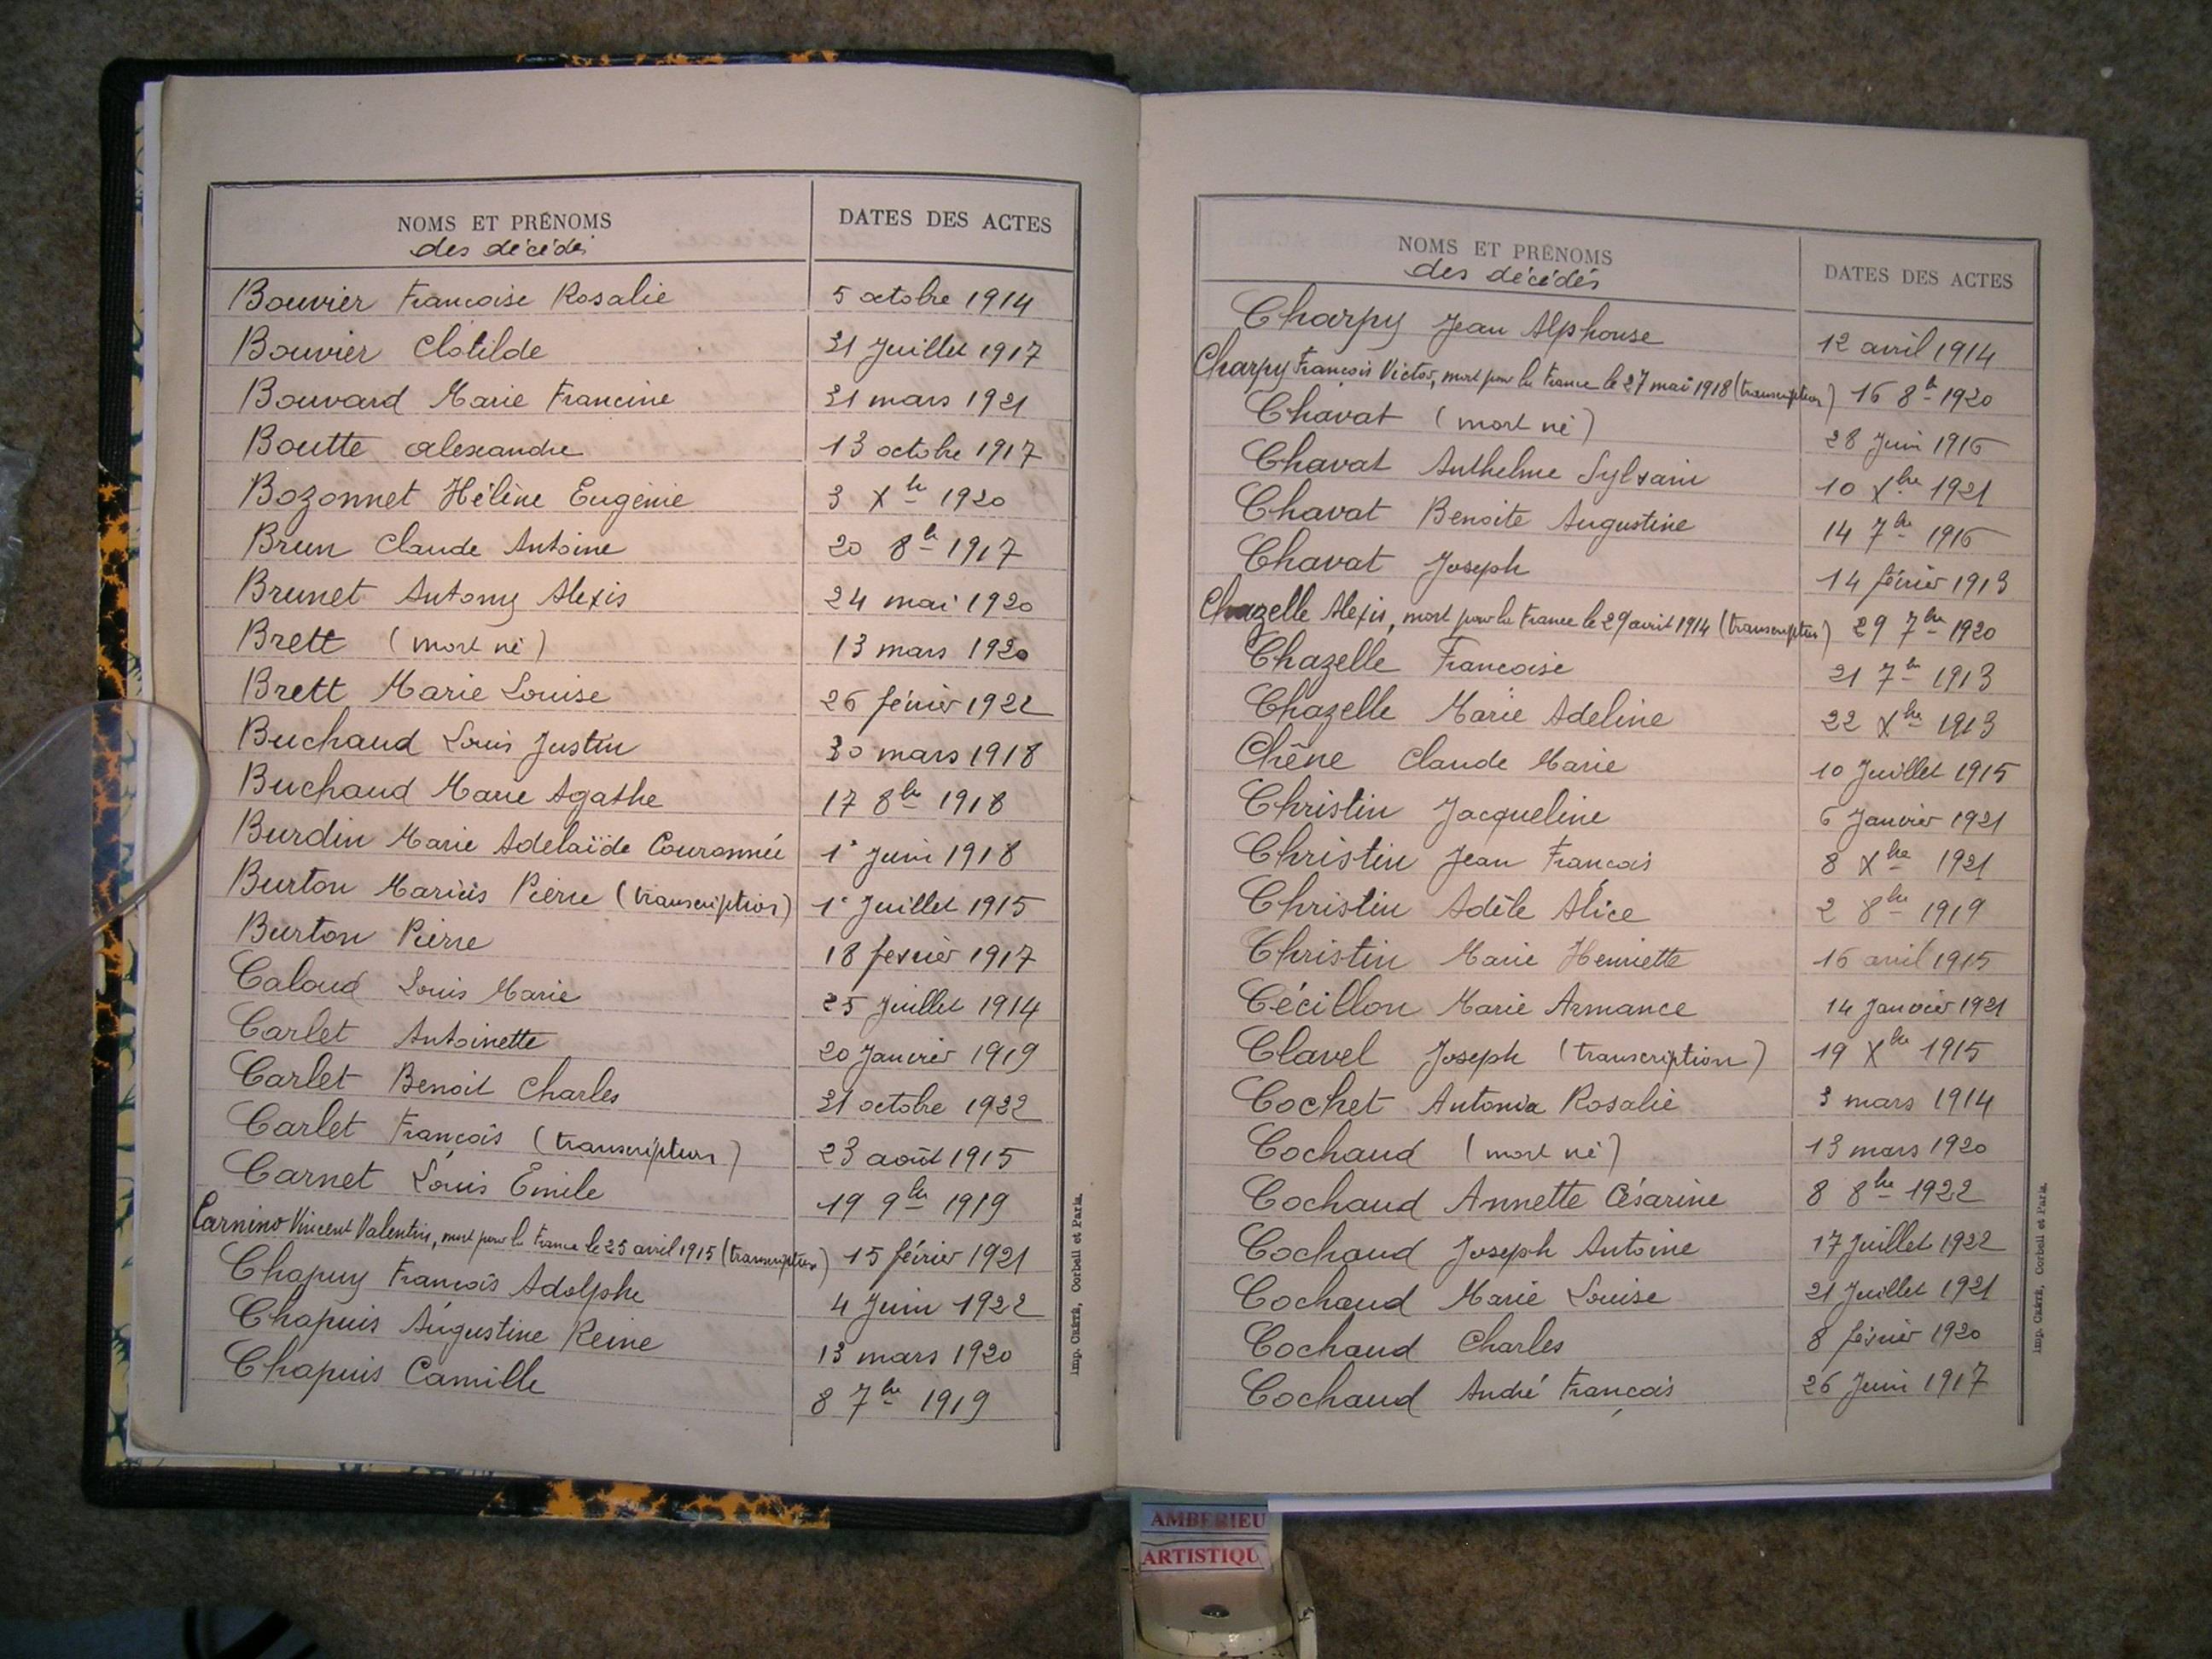 NOMS ET PRÉNOMS
des décédés
DATES DES ACTES
Bouvier Francoise Rosalie 5 octobre 1914
Bouvier Clotilde 31 Juillet 1917
Bouvard Marie Francine 31 mars 1921
Boutte alexandre 13 octobre 1917
Bozonnet Hélène Eugénie 3 Xbre 1920
Brun Claude Antoine 20 8bre 1917
Brunet Antony Alexis 24 mai 1920
Brett (mort né) 13 mars 1920
Brett Marie Louise 26 février 1922
Buchaud Louis Justin 30 mars 1918
Buchaud Marie Agathe 17 8bre 1918
Burdin Marie Adelaïde Couronnée 1° Juin 1918
Burton Marius Pierre (transcription) 1° Juillet 1915
Burton Pierre 18 fevrier 1917
Caloud Louis Marie 25 Juillet 1914
Carlet Antoinette 20 Janvier 1919
Carlet Benoit Charles 31 octobre 1922
Carlet François (transcription) 23 août 1915
Carnet Louis Emile 19 9bre 1919
Carnino Vincent Valentin, mort pour la France le 25 avril 1915 (transcription) 15 février 1921
Chapuy François Adolphe 4 Juin 1922
Chapuis Augustine Reine 13 mars 1920
Chapuis Camille 8 7bre 1919
Imp. CRÉTÉ, Corbeil et Paris.
NOMS ET PRÉNOMS
des décédés
DATES DES ACTES
Charpy Jean Alphonse 12 avril 1914
Charpy François Victor, mort pour la France le 27 mai 1918 (transcription) 16 8bre 1920
Chavat (mort né) 28 Juin 1916
Chavat Anthelme Sylvain 10 Xbre 1921
Chavat Benoite Augustine 14 7bre 1916
Chavat Joseph 14 février 1913
Chazelle Alexis, mort pour la France le 29 avril 1914 (transcription) 29 7bre 1920
Chazelle Francoise 21 7bre 1913
Chazelle Marie Adeline 22 Xbre 1913
Chêne Claude Marie 10 Juillet 1915
Christin Jacqueline 6 Janvier 1921
Christin Jean François 8 Xbre 1921
Christin Adèle Alice 2 8bre 1919
Christin Marie Henriette 16 avril 1915
Cécillon Marie Armance 14 Janvier 1921
Clavel Joseph (transcription) 19 Xbre 1915
Cochet Antonia Rosalie 3 mars 1914
Cochaud (mort né) 13 mars 1920
Cochaud Annette Césarine 8 8bre 1922
Cochaud Joseph Antoine 17 Juillet 1922
Cochaud Marie Louise 21 Juillet 1921
Cochaud Charles 8 février 1920
Cochaud André François 26 Juin 1917
Imp. CRÉTÉ, Corbeil et Paris.
AMBERIEU
ARTISTIQU